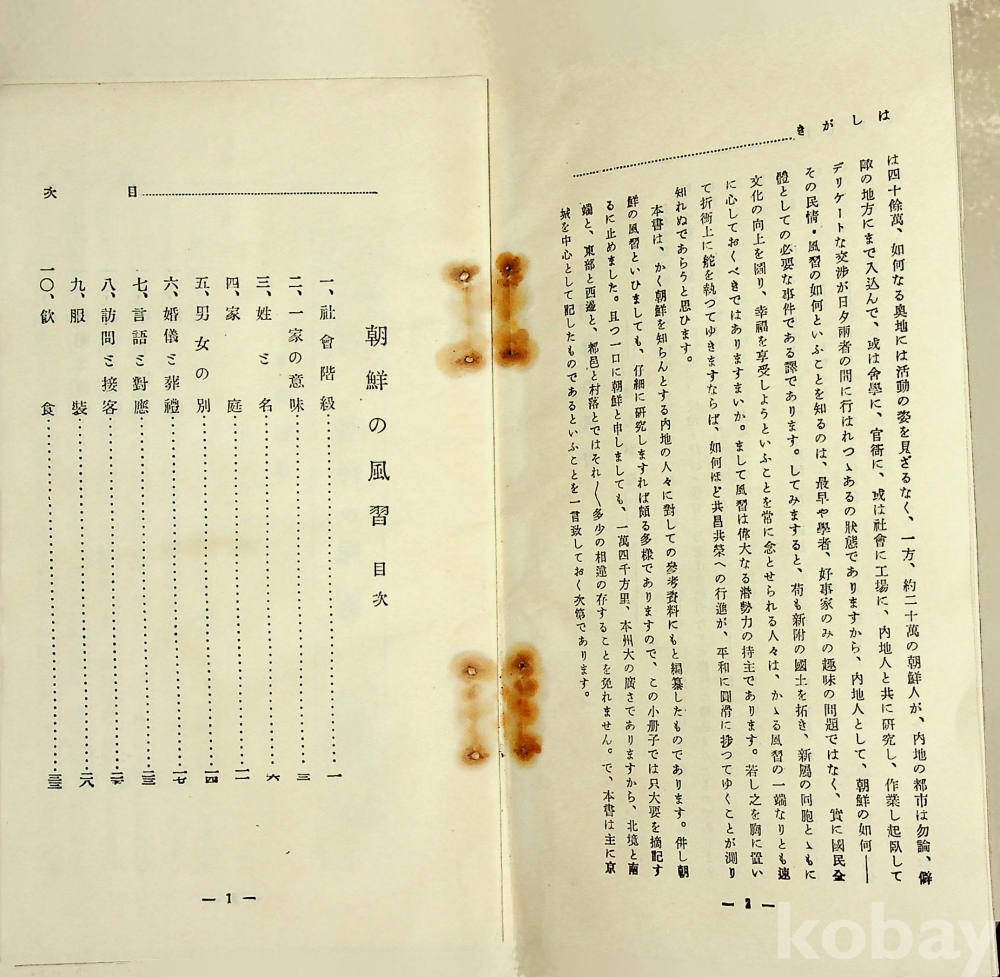 はしがき
は四十餘萬、如何なる奥地には活動の姿を見ざるなく、一方、約二十萬の朝鮮人が、內地の都市は勿論、僻
陬の地方にまで入込んで、或は會學に、官衙に、或は社會に工場に、內地人と共に硏究し、作業し起臥して
デリケートな交渉が日夕兩者の間に行はれつゝあるの狀態でありますから、內地人として、朝鮮の如何――
その民情・風習の如何といふことを知るのは、最早や學者、好事家のみの趣味の問題ではなく、實に國民全
體としての必要な事件である譯であります。してみますると、苟も新附の國土を拓き、新屬の同胞とゝもに
文化の向上を圖り、幸福を享受しようといふことを常に念とせられる人々は、かゝる風習の一端なりとも速
に心しておくべきではありますまいか。まして風習は偉大なる潜勢力の持主であります。若し之を胸に置い
て折衝上に舵を執つてゆきますならば、如何ほど共昌共榮への行進が、平和に圓滑に捗つてゆくことが測り
知れぬであらうと思ひます。
本書は、かく朝鮮を知らんとする內地の人々に對しての參考資料にもと編纂したものであります。併し朝
鮮の風習といひましても、仔細に硏究しますれば頗る多樣でありますので、この小册子では只大要を摘記す
るに止めました。且つ一口に朝鮮と申しましても、一萬四千方里、本州大の廣さでありますから、北境と南
端と、東部と西邊と、都邑と村落とではそれ〴〵多少の相違の存することを免れません。で、本書は主に京
城を中心として記したものであるといふことを一言致しておく次第であります。
― 2 ―
目次
朝鮮の風習 目次
一、社會階級……一
二、一家の意味……三
三、姓ミ名……六
四、家庭……一一
五、男女の別……一四
六、婚儀ミ葬禮……一七
七、言語ミ對應……二三
八、訪問ミ接客……二六
九、服裝……二八
一〇、飮食……三三
― 1 ―
kobay